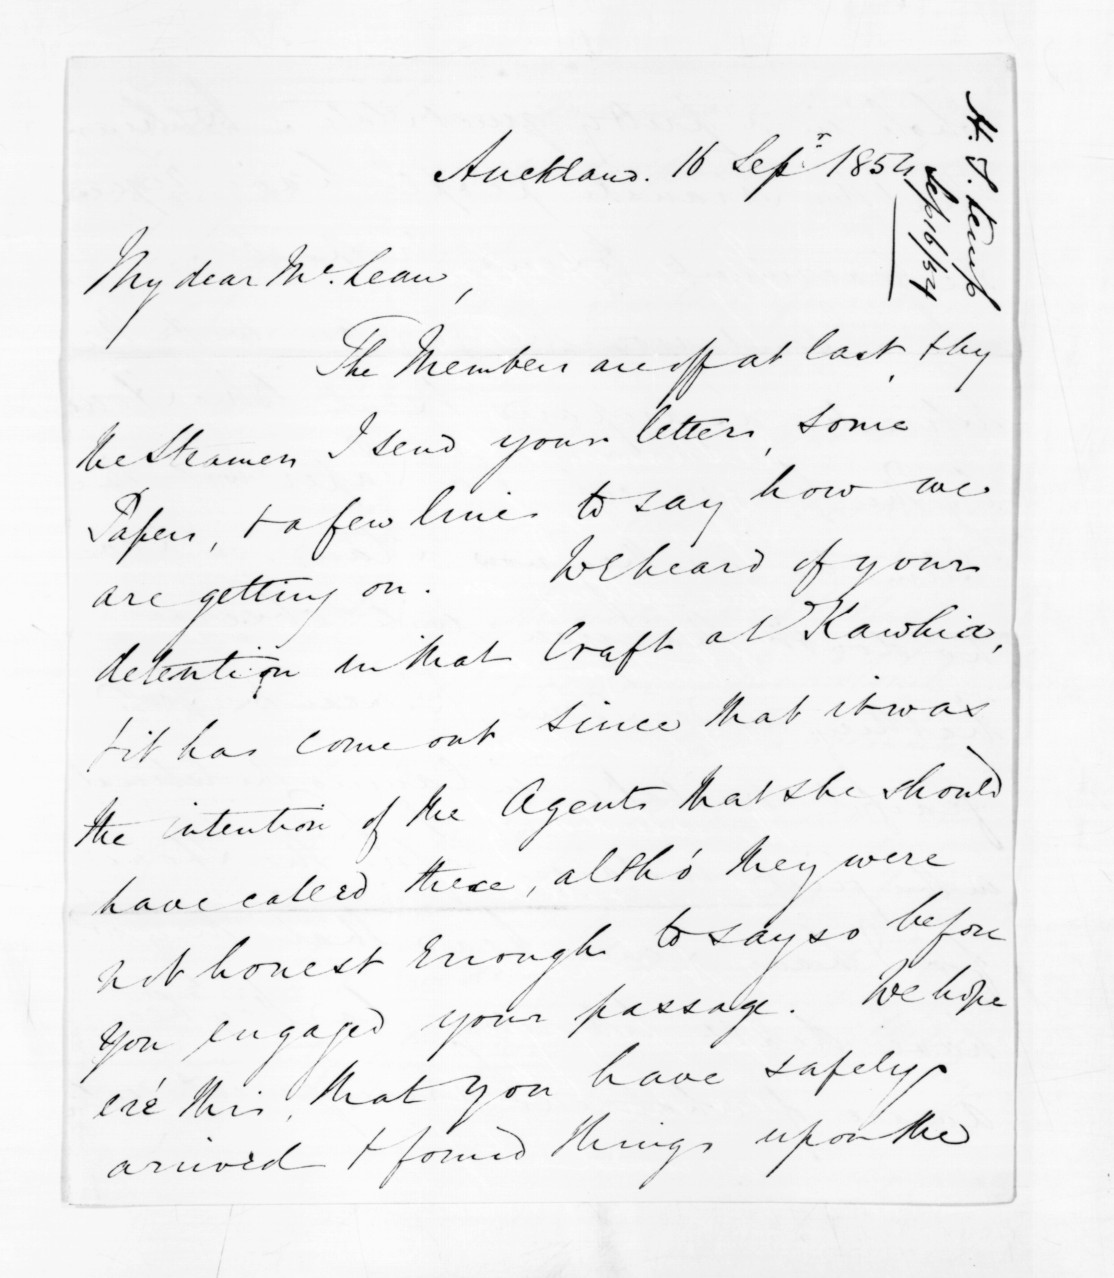 Auckland. 16 Sepr. 1854
H. T. Kemp
Sep 16/54
My dear Mc.Lean,
The Members are off at last, & by
the Steamer I send your letters, some
Papers, & a few lines to say how we
are getting on. We heard of your
detention in that Craft at Kawhia,
& it has come out since that it was
the intention of the Agents that she should
have called there, altho' they were
not honest enough to say so before
you engaged your passage. We hope
ere this, that you have safely
arrived & found things upon the